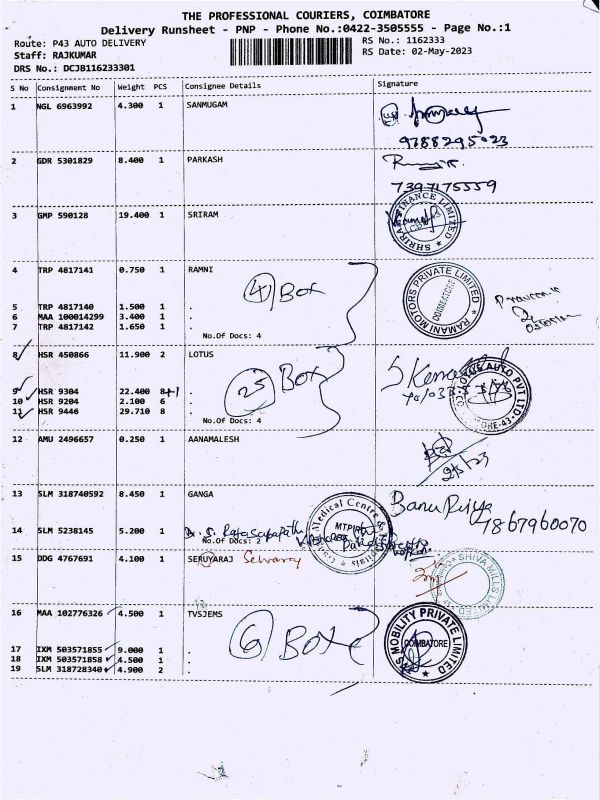 THE PROFESSIONAL COURIERS, COIMBATORE
Delivery Runsheet - PNP - Phone No.:0422-3505555 - Page No.:1
Route: P43 AUTO DELIVERY RS No.: 1162333
Staff: RAJKUMAR RS Date: 02-May-2023
DRS No.: DCJB116233301
S No Consignment No Weight PCS Consignee Details Signature
1 NGL 6963992 4.300 1 SANMUGAM
9788295023
2 GDR 5301829 8.400 1 PARKASH
7397175559
3 GMP 590128 19.400 1 SRIRAM
SHRIRAM FINANCE LIMITED
4 TRP 4817141 0.750 1 RAMNI
4 Box
RAMANI MOTORS PRIVATE LIMITED
COIMBATORE
5 TRP 4817140 1.500 1 .
6 MAA 100014299 3.400 1 .
7 TRP 4817142 1.650 1 .
No.Of Docs: 4
8 HSR 450866 11.900 2 LOTUS
25 Box
LOTUS AUTO PVT LTD
9 HSR 9304 22.400 8+1 .
10 HSR 9204 2.100 6 .
11 HSR 9446 29.710 8 .
No.Of Docs: 4
12 AMU 2496657 0.250 1 AANAMALESH
2/5/23
13 SLM 318740592 8.450 1 GANGA
Banu Priya
7867960070
14 SLM 5238145 5.200 1
No.Of Docs: 2
Medical Centre & Hospitals
15 DDG 4767691 4.100 1 SERUYARAJ Selvaraj
SHIVA MILLS LIMITED
16 MAA 102776326 4.500 1 TVSJEMS
6 Box
MOBILITY PRIVATE LIMITED
COIMBATORE
17 IXM 503571855 9.000 1 .
18 IXM 503571858 4.500 1 .
19 SLM 318728340 4.900 2 .